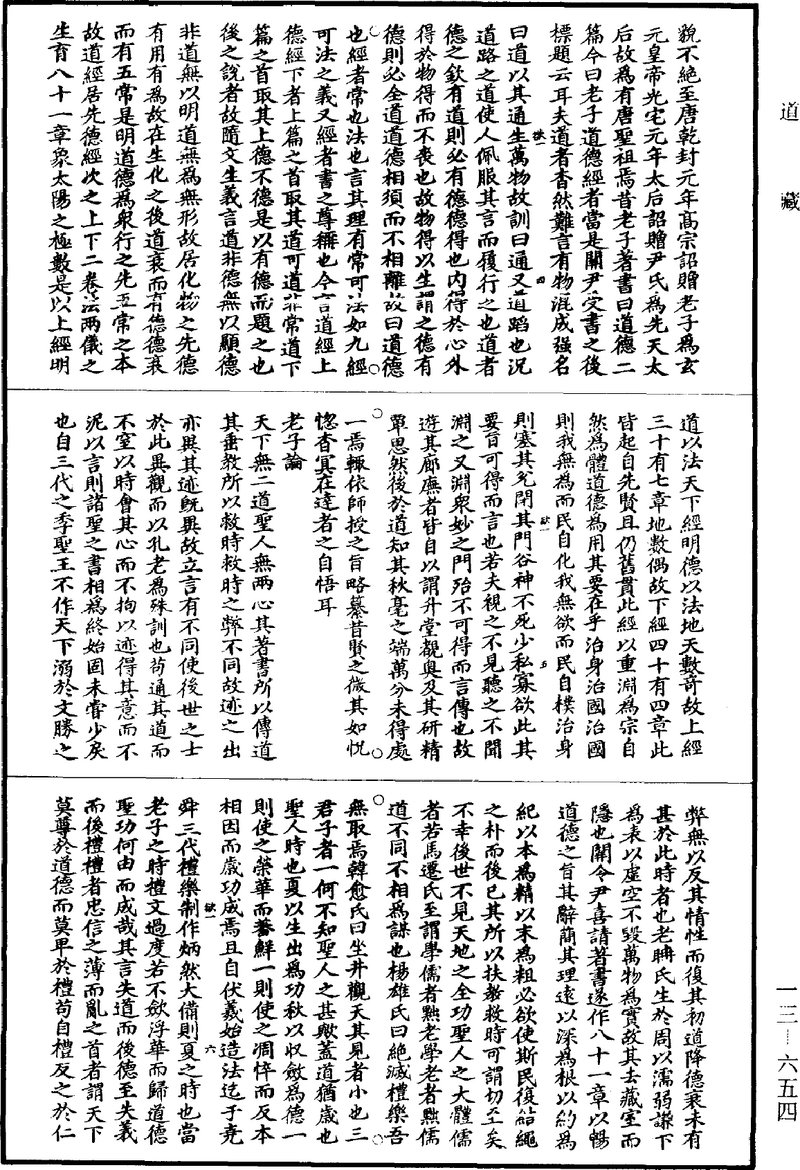 道藏
貌不絕至唐乾封元年高宗詔贈老子為玄
元皇帝光宅元年太后詔贈尹氏為先天太
后故為有唐聖祖焉昔老子著書曰道德二
篇今曰老子道德經者當是關尹受書之後
標題云耳夫道者杳然難言有物混成强名
曰道以其通生萬物故訓曰通又道蹈也況
道路之道使人佩服其言而履行之也道者
德之欽有道則必有德德得也内得於心外
得於物得而不喪也故物得以生謂之德有
德則必全道道德相須而不相離故曰道德
也經者常也法也言其理有常可法如九經
可法之義又經者書之尊稱也今言道經上
德經下者上篇之首取其道可道非常道下
篇之首取其上德不德是以有德而題之也
後之說者故隨文生義言道非德無以顯德
非道無以明道無為無形故居化物之先德
有用有為故在生化之後道衰而有德德衰
而有五常是明道德為衆行之先五常之本
故道經居先德經次之上下二卷法兩儀之
生育八十一章象太陽之極數是以上經明
道以法天下經明德以法地天數奇故上經
三十有七章地數偶故下經四十有四章此
皆起自先賢且仍舊貫此經以重淵為宗自
然為體道德為用其要在乎治身治國治國
則我無為而民自化我無欲而民自樸治身
則塞其兌閉其門谷神不死少私寡欲此其
要旨可得而言也若夫視之不見聽之不聞
淵之又淵衆妙之門殆不可得而言傳也故
遊其廊廡者皆自以謂升堂覩奥及其研精
覃思然後於道知其秋毫之端萬分未得處
一焉輒依師授之旨略纂昔賢之微其如恍
惚杳冥在達者之自悟耳
老子論
天下無二道聖人無兩心其著書所以傳道
其垂教所以救時救時之弊不同故迹之出
亦異其迹旣異故立言有不同使後世之士
於此異觀而以孔老為殊訓也苟通其道而
不室以時會其心而不拘以迹得其意而不
泥以言則諸聖之書相為終始固未甞少戾
也自三代之季聖王不作天下溺於文勝之
弊無以反其情性而復其初道降德衰未有
甚於此時者也老聃氏生於周以濡弱謙下
為表以虚空不毁萬物為實故其去藏室而
隱也關令尹喜請著書遂作八十一章以暢
道德之旨其辭簡其理遠以深為根以約為
紀以本為精以末為粗必欲使斯民復結繩
之朴而後已其所以扶教救時可謂切至矣
不幸後世不見天地之全功聖人之大體儒
者若馬遷氏至謂學儒者黜老學老者黜儒
道不同不相為謀也楊雄氏曰絕滅禮樂吾
無取焉韓愈氏曰坐井觀天其見者小也三
君子者一何不知聖人之甚歟蓋道猶歲也
聖人時也夏以生出為功秋以収斂為德一
則使之榮華而蕃鮮一則使之凋悴而反本
相因而歲功成焉且自伏羲始造法迄于堯
舜三代禮樂制作炳然大備則夏之時也當
老子之時禮文過度若不斂浮華而歸道德
聖功何由而成哉其言失道而後德至失義
而後禮禮者忠信之薄而亂之首者謂天下
莫尊於道德而莫卑於禮苟自禮反之於仁
一三—六五四